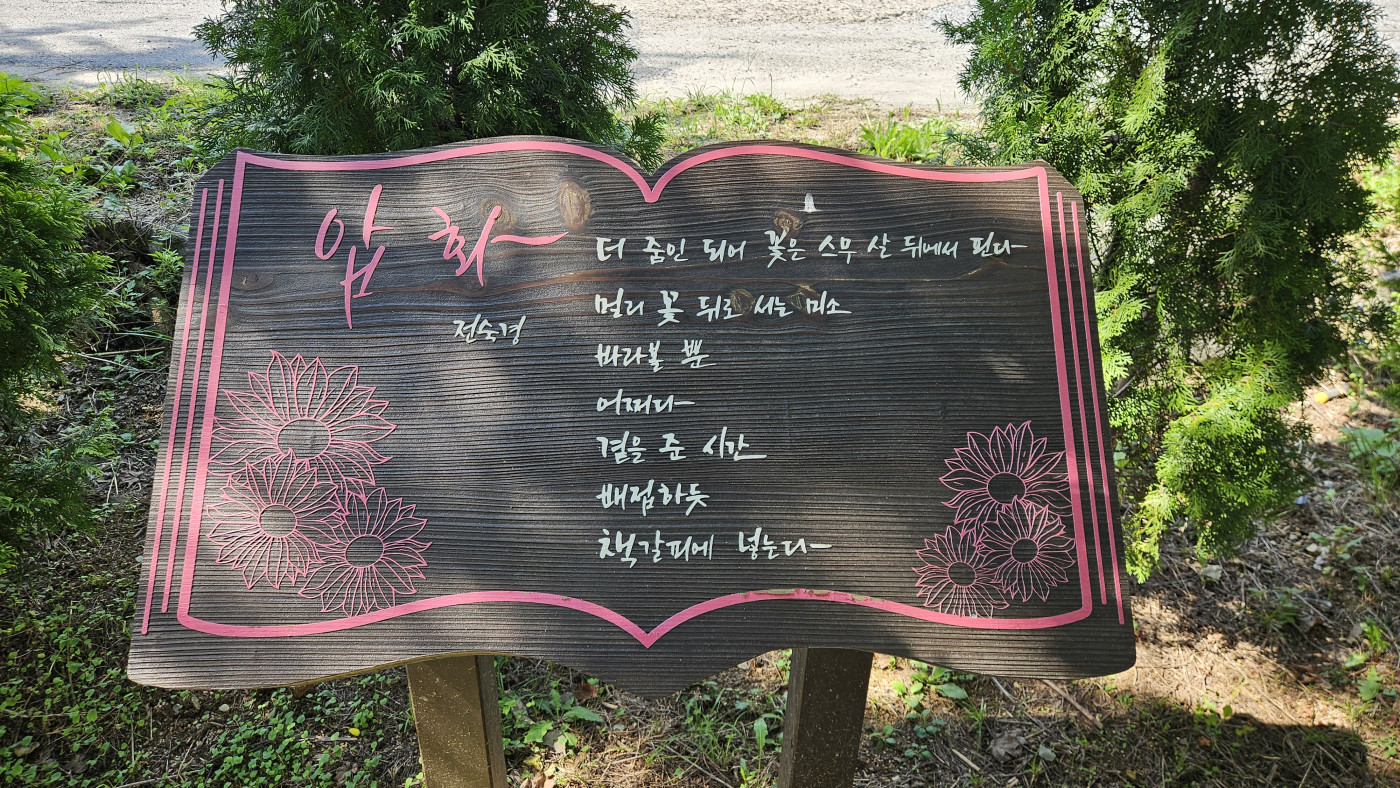 압화
전숙경
더 줌인 되어 꽃은 스무 살 뒤에서 핀다
멀리 꽃 뒤로 서는 미소
바라볼 뿐
어쩌다
곁을 준 시간
배접하듯
책갈피에 넣는다